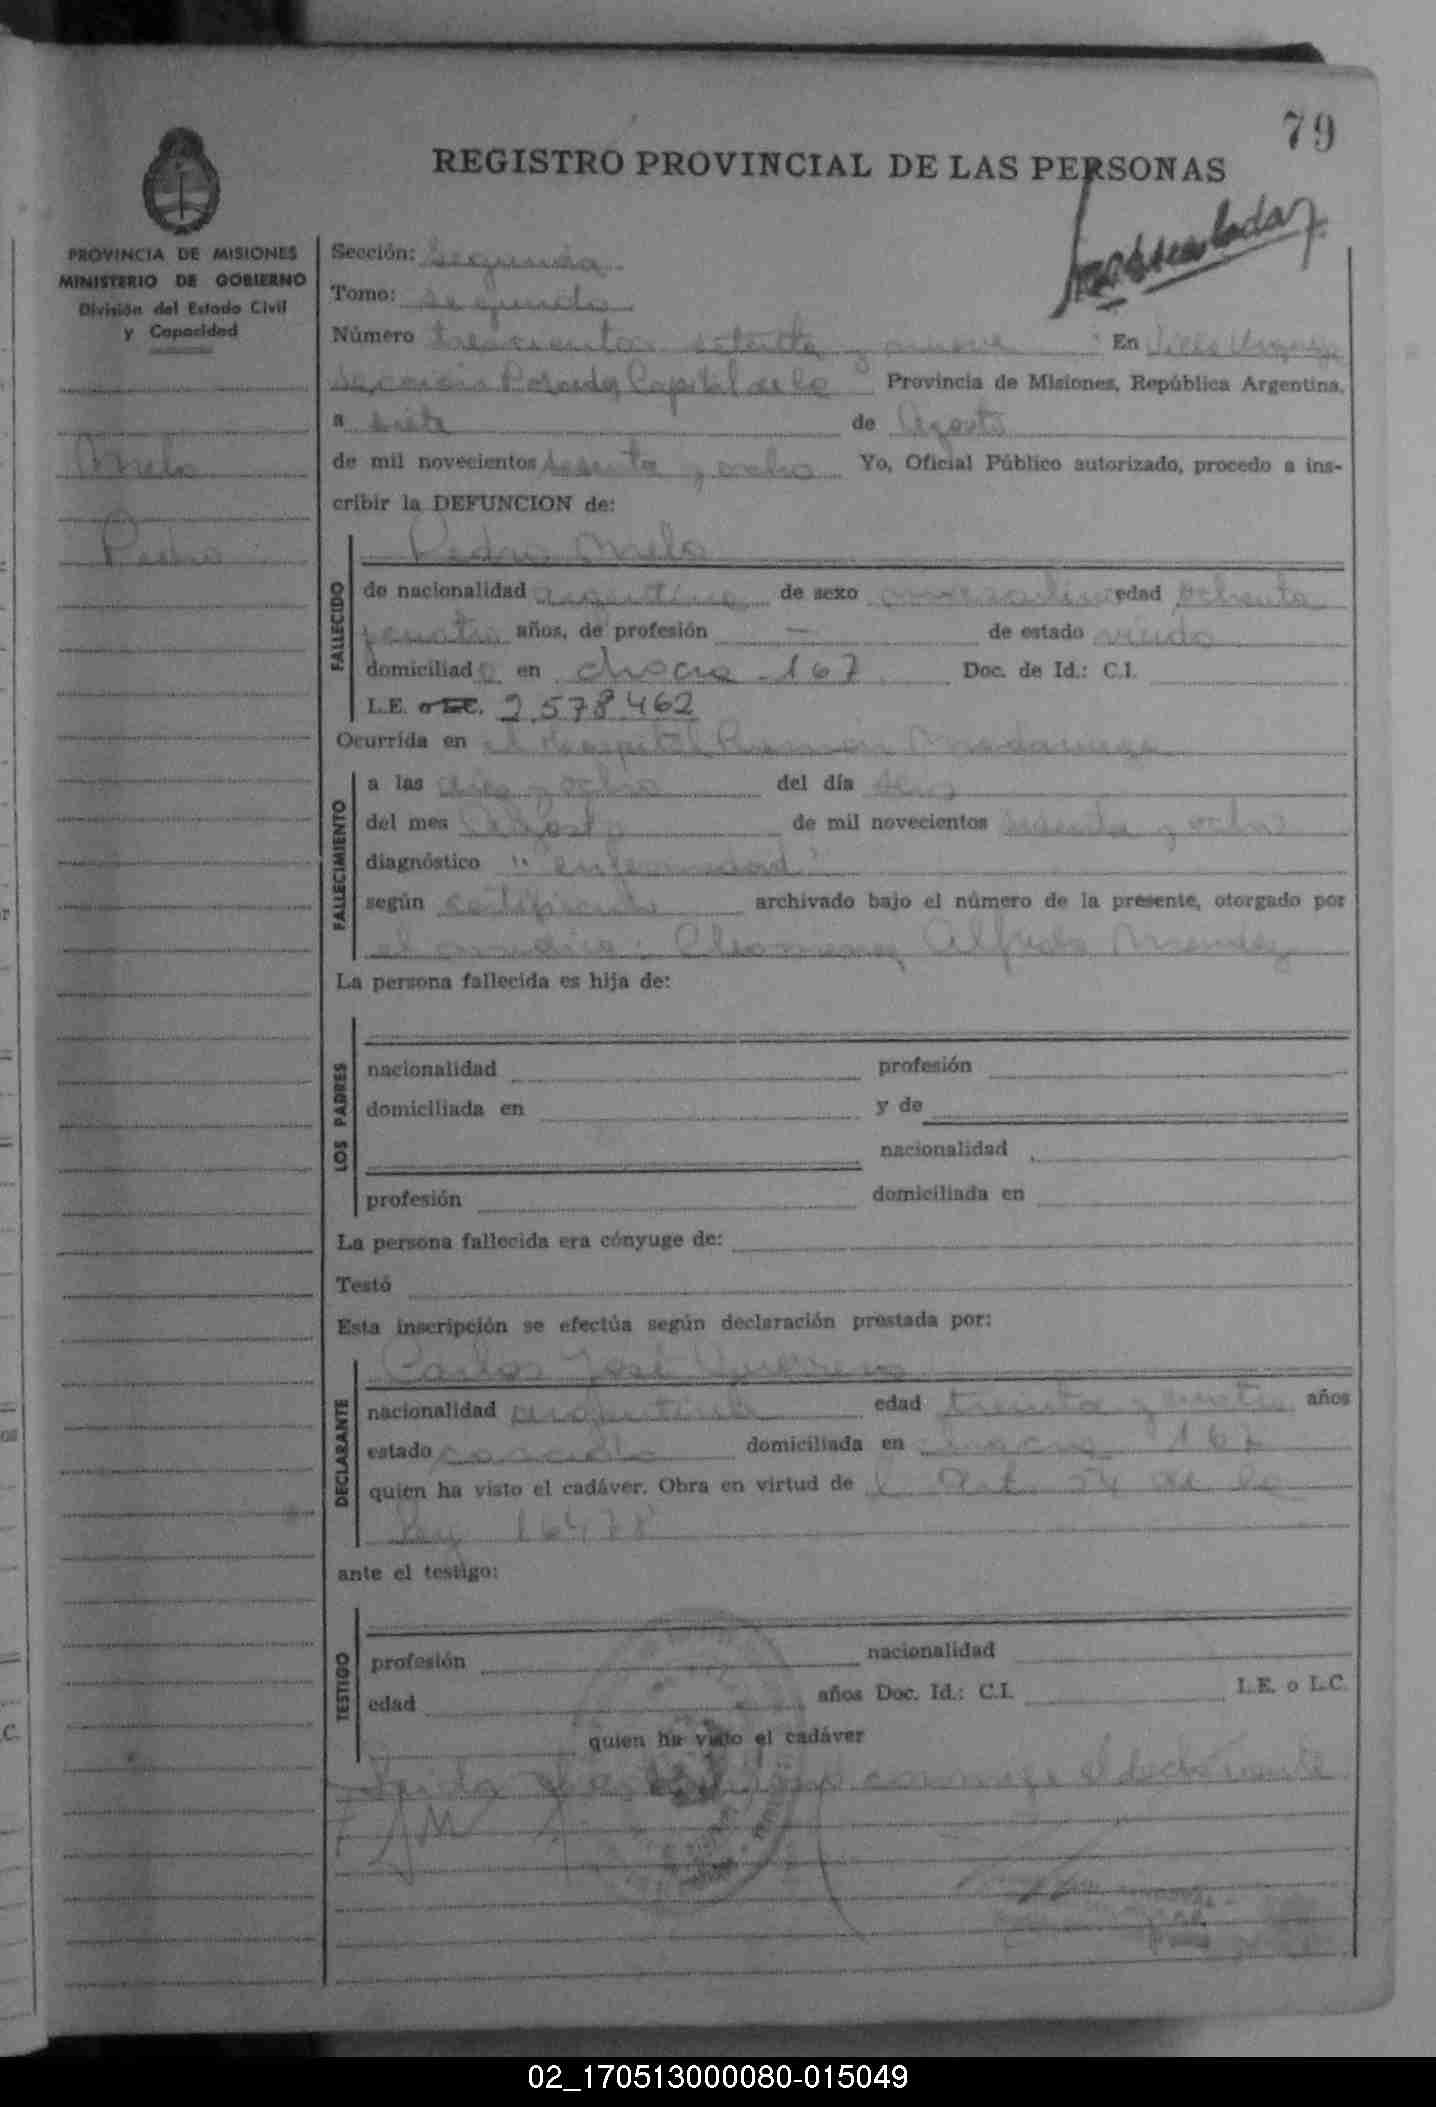 79
REGISTRO PROVINCIAL DE LAS PERSONAS
PROVINCIA DE MISIONES
MINISTERIO DE GOBIERNO
División del Estado Civil
y Capacidad
Melo
Pedro
Sección: Segunda
Tomo: segundo
Número trescientos setenta y nueve En Villa Urquiza
Posadas Capital de la Provincia de Misiones, República Argentina,
a siete de Agosto
de mil novecientos sesenta y ocho Yo, Oficial Público autorizado, procedo a ins-
cribir la DEFUNCION de:
Pedro Melo
FALLECIDO
de nacionalidad argentina de sexo masculino edad ochenta
y cuatro años, de profesión — de estado viudo
domiciliado en chacra 167 Doc. de Id.: C.I.
L.E. o L.C. 2.578.462
Ocurrida en el Hospital Ramón Madariaga
FALLECIMIENTO
a las diez y ocho del día seis
del mes Agosto de mil novecientos sesenta y ocho
diagnóstico "enfermedad"
según certificado archivado bajo el número de la presente, otorgado por
el médico: Alfredo Mendez
La persona fallecida es hija de:
LOS PADRES
nacionalidad profesión
domiciliada en y de
nacionalidad
profesión domiciliada en
La persona fallecida era cónyuge de:
Testó
Esta inscripción se efectúa según declaración prestada por:
DECLARANTE
Carlos José
nacionalidad argentina edad treinta y cuatro años
estado casado domiciliada en chacra 167
quien ha visto el cadáver. Obra en virtud de l Art. 54 de la
Ley 16478
ante el testigo:
TESTIGO
profesión nacionalidad
edad años Doc. Id.: C.I. L.E. o L.C.
quien ha visto el cadáver
Leida el acta conmigo el declarante
02_170513000080-015049